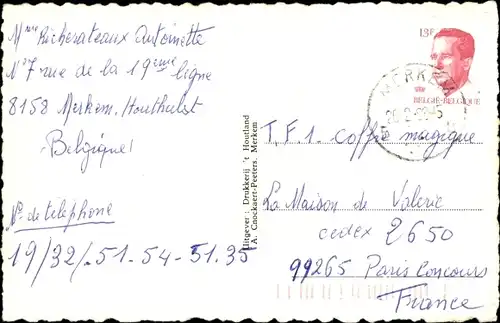 Mme Richesateaux Antoinette
N° 7 rue de la 19eme ligne
8158 Merkem, Houthulst
Belgique!
N° de telephone
19/32/.51-54-51.35
Uitgever: Drukkerij 't Houtland
A. Cnockaert-Peeters, Merkem
13F
BELGIË-BELGIQUE
MERKEM
T.F.1. coffre magique
La Maison de Valerie
cedex 2650
99265 Paris Concours
France